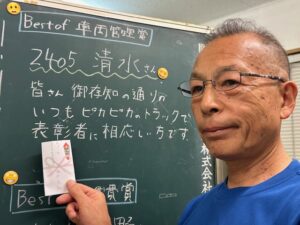 Best of 車両管理賞
2405 清水さん
皆さん御存知の通り
いつもピカピカのトラックで
表彰者に相応しい方です。
株式会社
Best
賞